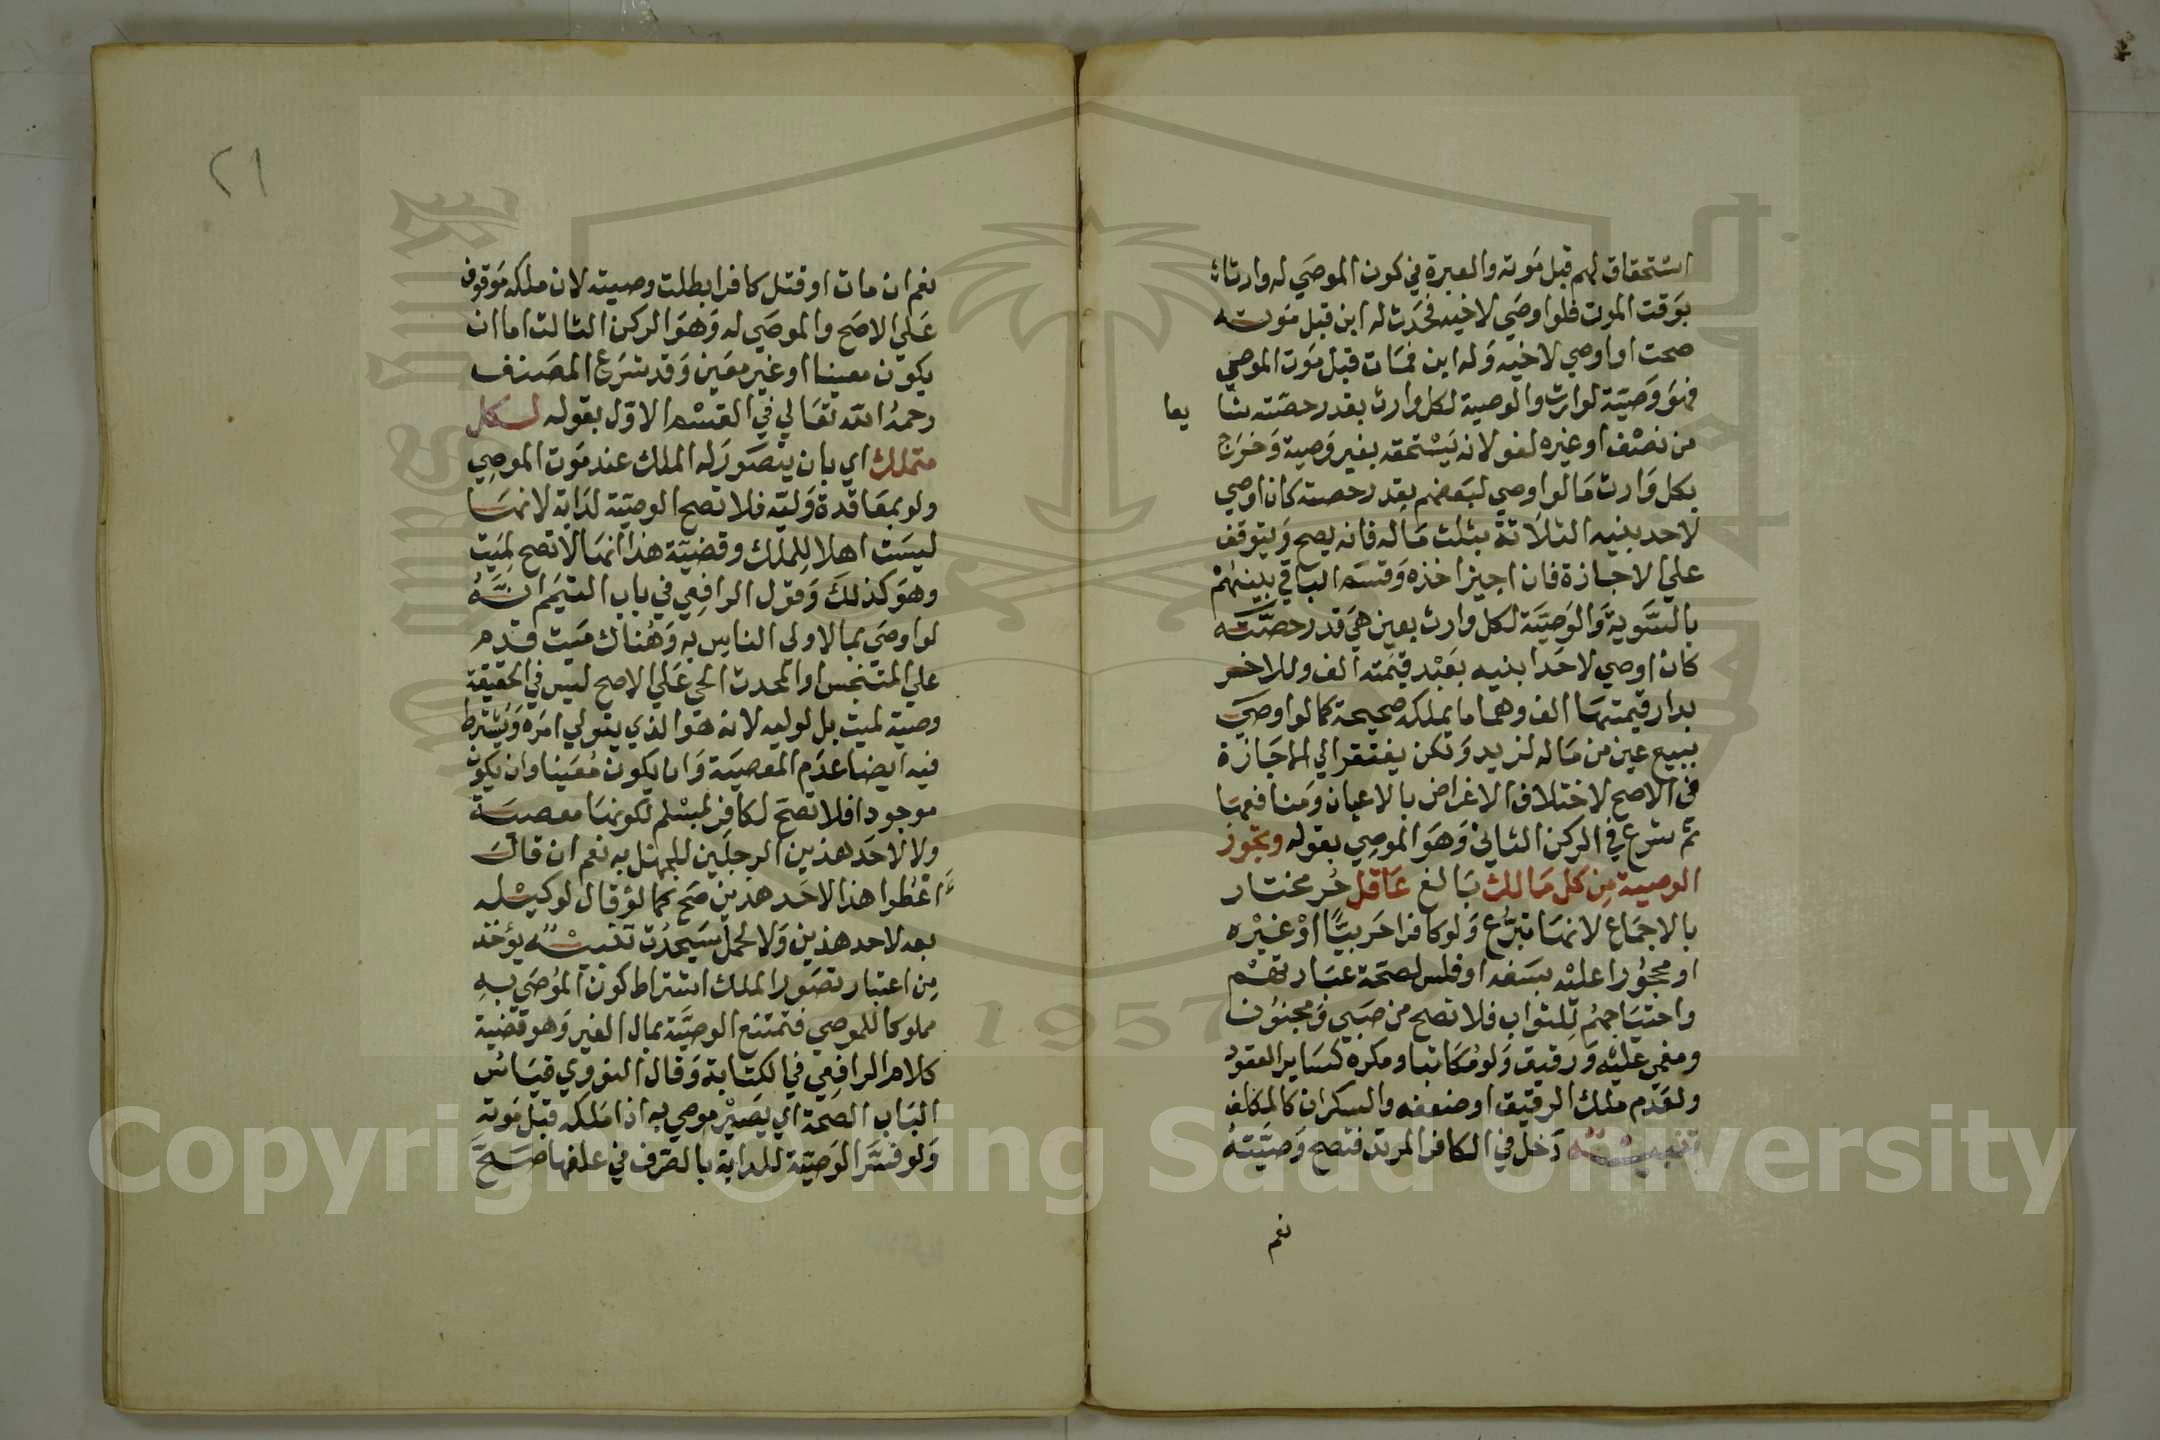 استحقاق لهم قبل موته والعبرة في كون الموصي له وارثا
بوقت الموت فلو اوصي لاخيه فحدث له ابن قبل موته
صحت او اوصي لاخيه وله ابن فمات قبل موت الموصي
فهو وصية لوارث والوصية لكل وارث بقدر حصته شا يعا
من نصف او غيره لغو لانه يستحقه بغير وصية وخرج
بكل وارث مالو اوصي لبعضهم بقدر حصته كان اوصي
لاحد بنيه الثلاثة بثلث ماله فانه يصح ويتوقف
علي الاجازة فان اجيز اخذه وقسم الباقي بينهم
بالسوية والوصية لكل وارث بعين هي قدر حصته
كان اوصي لاحد ابنيه بعبد قيمته الف وللاخر
بدار قيمتها الف وهما مايملكه صحيحة كما لو اوصي
ببيع عين من ماله لزيد ولكن يفتقر الي الاجازة
في الاصح لاختلاف الاغراض بالاعيان ومنافعها
ثم شرع في الركن الثاني وهو الموصي بقوله وتجوز
الوصية من كل مالك بالغ عاقل حر مختار
بالاجماع لانها تبرع ولو كافرا حربيا او غيره
او محجورا عليه بسفه او فلس لصحة عبارتهم
واحتياجهم للثواب فلا تصح من صبي ومجنون
ومغمي عليه ورقيق ولو مكاتبا ومكره كساير العقود
ولعدم ملك الرقيق او ضعفه والسكران كالمكلف
تنبيه دخل في الكافر المرتد فتصح وصيته
نعم
٢١
نعم ان مات او قتل كافرا بطلت وصيته لان ملكه موقوف
علي الاصح والموصي له وهو الركن الثالث اما ان
يكون معينا او غير معين وقد شرع المصنف
رحمه الله تعالي في القسم الاول بقوله لكل
متملك اي بان يتصور له الملك عند موت الموصي
ولو بمعاقدة وليه فلا تصح الوصية لدابة لانها
ليست اهلا للملك وقضية هذا انها لا تصح لميت
وهو كذلك وقول الرافعي في باب التيمم انه
لو اوصي بما لاولي الناس به وهناك ميت قدم
علي المتنجس او المحدث الحي علي الاصح ليس في الحقيقة
وصية لميت بل لوليه لانه هو الذي يتولي امره ويشترط
فيه ايضا عدم المعصية وان يكون معينا وان يكون
موجودا فلا تصح لكافر بمسلم لكونها معصية
ولا لاحد هذين الرجلين للجهل به نعم ان قال
اعطوا هذا لاحد هذين صح كما لو قال لوكيله
بعه لاحد هذين ولا لحمل سيحدث تنبيه يؤخذ
من اعتبار تصور الملك اشتراط كون الموصي به
مملوكا للموصي فتمتنع الوصية بمال الغير وهو قضية
كلام الرافعي في الكتابة وقال النووي قياس
الباب الصحة اي يصير موصي به اذا ملكه قبل موته
ولو فسر الوصية للدابة بالصرف في علفها صح
1957
Copyright © King Saud University